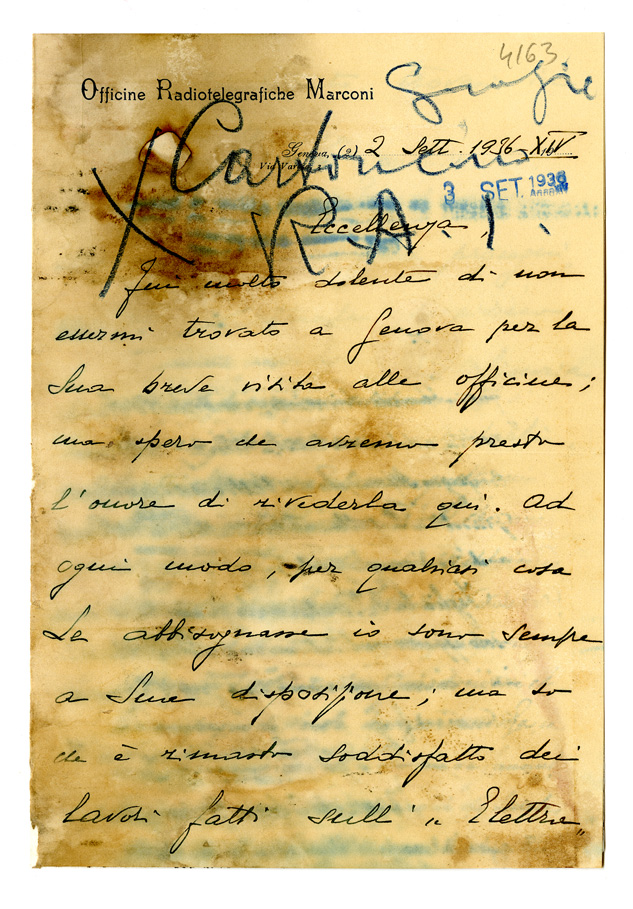 4163
Grazie
Officine Radiotelegrafiche Marconi
Genova, (2) 2 Sett. 1936-XIV
Via Var
3 SET. 1936
R.A.I.
Eccellenza,
Fui molto dolente di non
essermi trovato a Genova per la
Sua breve visita alle officine;
ma spero che avremo presto
l'onore di rivederla qui. Ad
ogni modo, per qualsiasi cosa
Le abbisognasse io sono sempre
a Sua disposizione; ma so
che è rimasto soddisfatto dei
lavori fatti sull' „ Elettra"